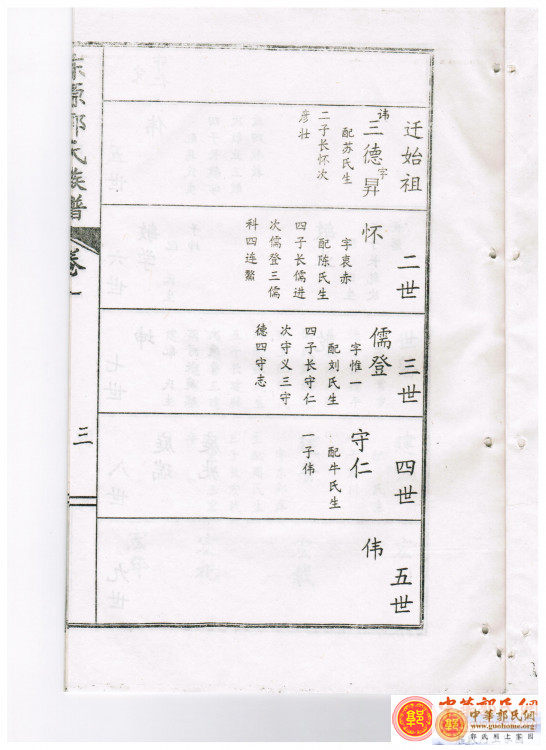 迁始祖
讳三德字昇
配苏氏生
二子长怀次
彦壮
二世
怀
字衷赤
配陈氏生
四子长儒进
次儒登三儒
科四连鰲
三世
儒登
字惟一
配刘氏生
四子长守仁
次守义三守
德四守志
四世
守仁
配牛氏生
一子伟
五世
伟
源郭氏族谱
卷一
三
中華郭氏網
中華郭氏網
www.guohome.org
郭氏網上家园